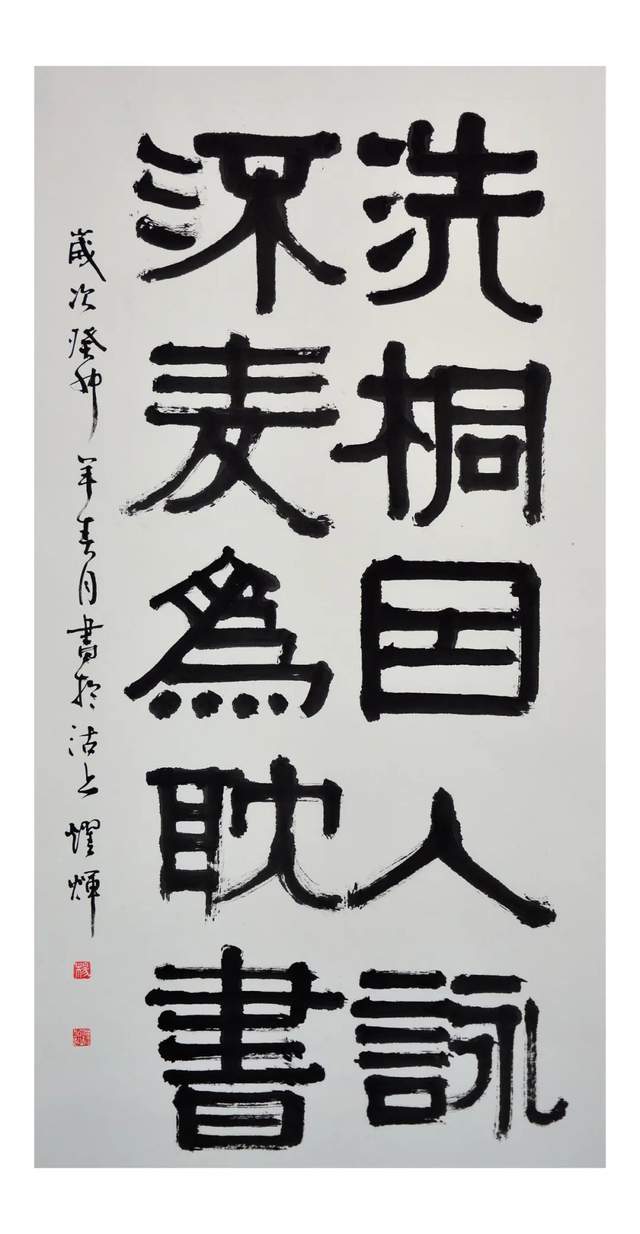 洗桐因人詠
㳅麦為耽書
歲次癸卯年春月書於沽上燿輝